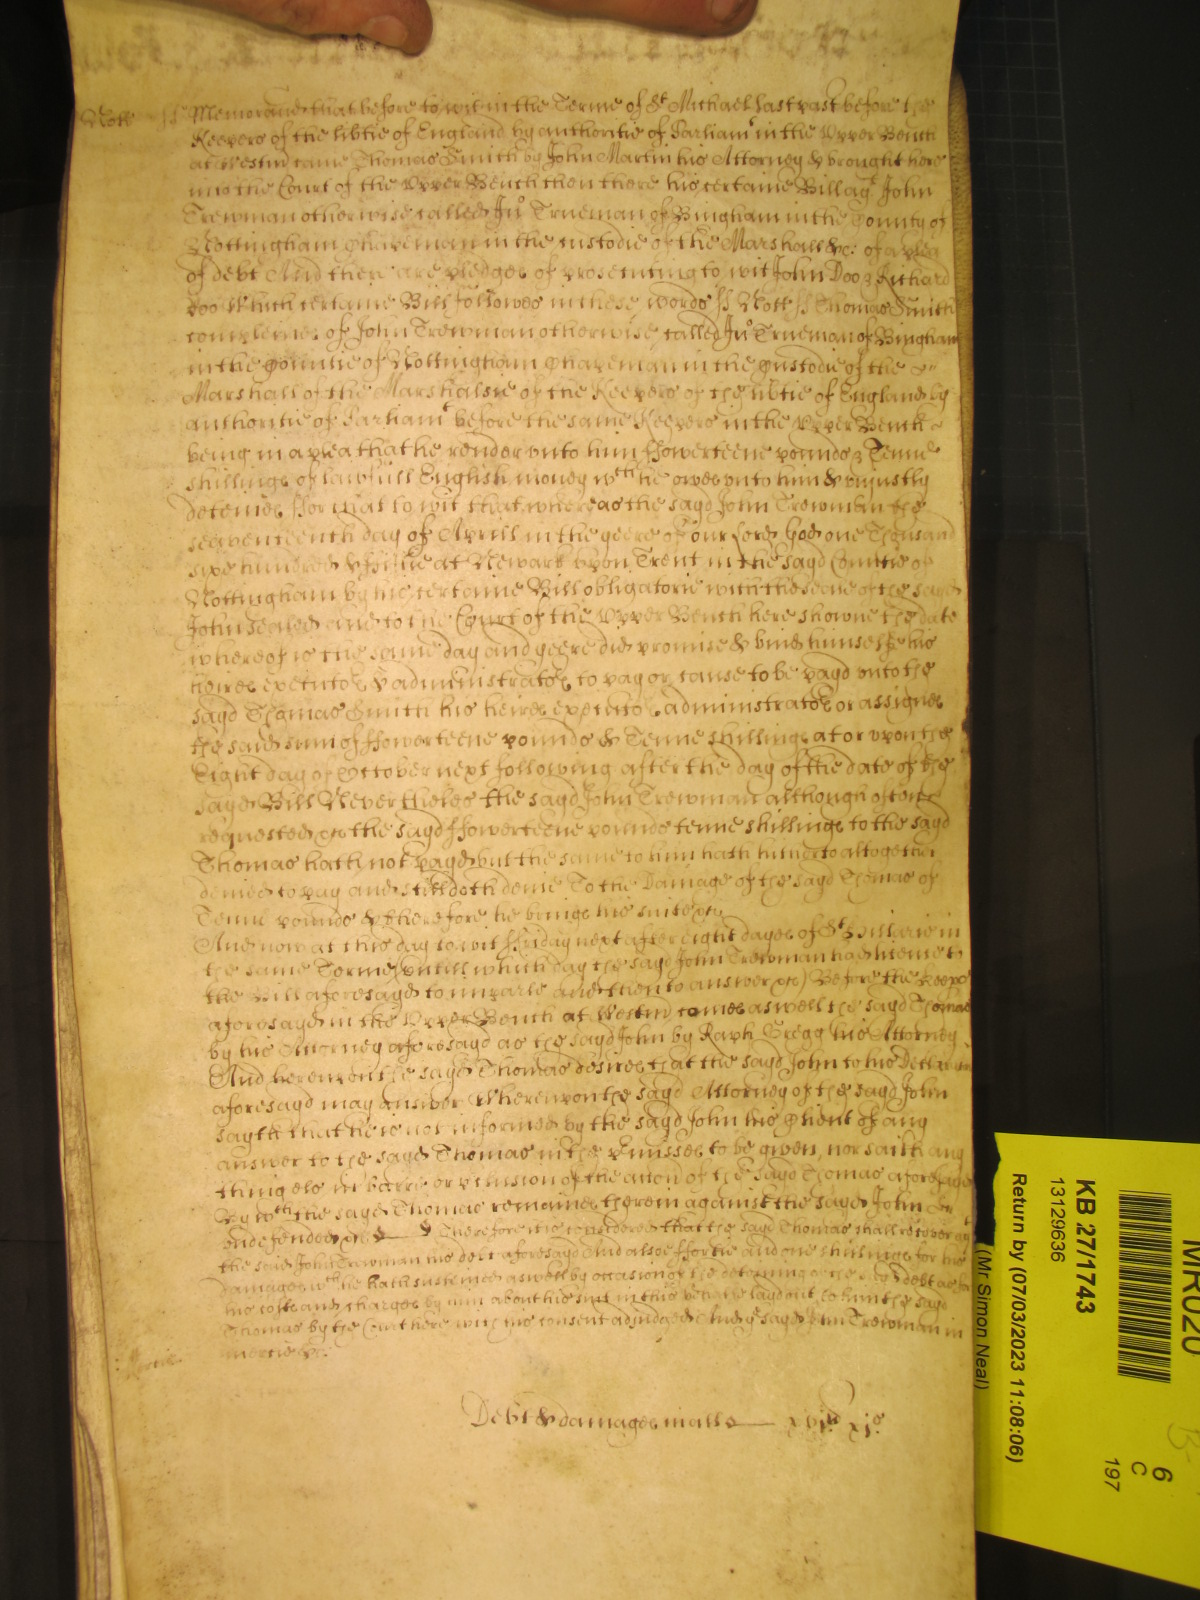 Nott ss Memorand that before to wit in the Terme of St Michael last past before the
Keepers of the libtie of England by authoritie of Parliamt in the Upper Bench
at Westm came Thomas Smith by John Martin his Attorney & brought here
into the Court of the Upper Bench then there his certaine Bill agt John
Trewman otherwise called Jno Trueman of Bingham in the County of
Nottingham Chapeman in the custodie of the Marshall &c: of a plea
of debt And there are pledges of prosecuting to wit John Doo & Richard
Roo Which certaine Bill followes in these words ss Nott ss Thomas Smith
complenes of John Trewman otherwise called Jno Trueman of Bingham
in the Countie of Nottingham Chapeman in the Custodie of the
Marshall of the Marshalsie of the Keepers of the libtie of England by
authoritie of Parliamt before the same Keepers in the Upper Bench
being in a plea that he render unto him ffowerteene pounds & Tenne
shillings of lawfull English money wch he owes unto him & uniustly
detenies ffor that to wit that whereas the sayd John Trewman the
seaventeenth day of Aprill in the yeere of our Lord God one Thousand
sixe hundred & ffiftie at Newark upon Trent in the sayd Countie of
Nottingham by his certaine Bill obligatorie with the seale of the sayd
John sealed and to the Court of the Upper Bench here showne the date
whereof is the same day and yeere did promise & bind himselfe his
heires executors & administrators to pay or cause to be payd unto the
sayd Thomas Smith his heires executors administrators or assignes
the said sum of ffowerteene pounds & Tenne shillings at or upon the
Eight day of October next following after the day of the date of the
sayd Bill Neverthieles the sayd John Trewman although often
requested &c the sayd ffowerteene pounds tenne shillings to the sayd
Thomas hath not payd but the same to him hath hitherto altogether
denied to pay and still doth denie To the Damage of the sayd Thomas of
Tenn pounds & therefore he brings his suite &c
And now at this day to wit ffriday next after eight dayes of St Hillarie in
the same Terme untill which day the sayd John Trewman had licence to
the Bill aforesayd to imparle and then to answer &c) Before the Keeps
aforesayd in the Upper Bench at Westm comes aswell the sayd Thomas
by his Attorney aforesayd as the sayd John by Raph Gregg his Attorney
And hereupon the sayd Thomas desires that the sayd John to his Declaracon
aforesayd may answer Whereupon the sayd Attorney of the sayd John
sayth that he is not informed by the sayd John his Client of any
answer to the sayd Thomas in the Pmisses to be given, nor saith any
thing els in barre or of the accon of the sayd Thomas aforesayd
By wch the sayd Thomas remaines therein against the sayd John
undefended &c Therefore it is considered that the sayd Thomas shall recover agt
the said John Trewman his debt aforesayd And alsoe ffortie and one shillings for his
damages wch he hath susteined aswell by occasion of the deteining of the sayd debt as for
his costs and charges by him about his suit in this behalfe layd out to him the sayd
Thomas by the Court here with his consent adjudged And ye sayd John Trewman in
mercie &c:
Mercie
Debt & damages in all xvili xis
MR020
KB 27/1743
13129636
Return by (07/03/2023 11:08:06)
(Mr Simon Neal)
6
C
197